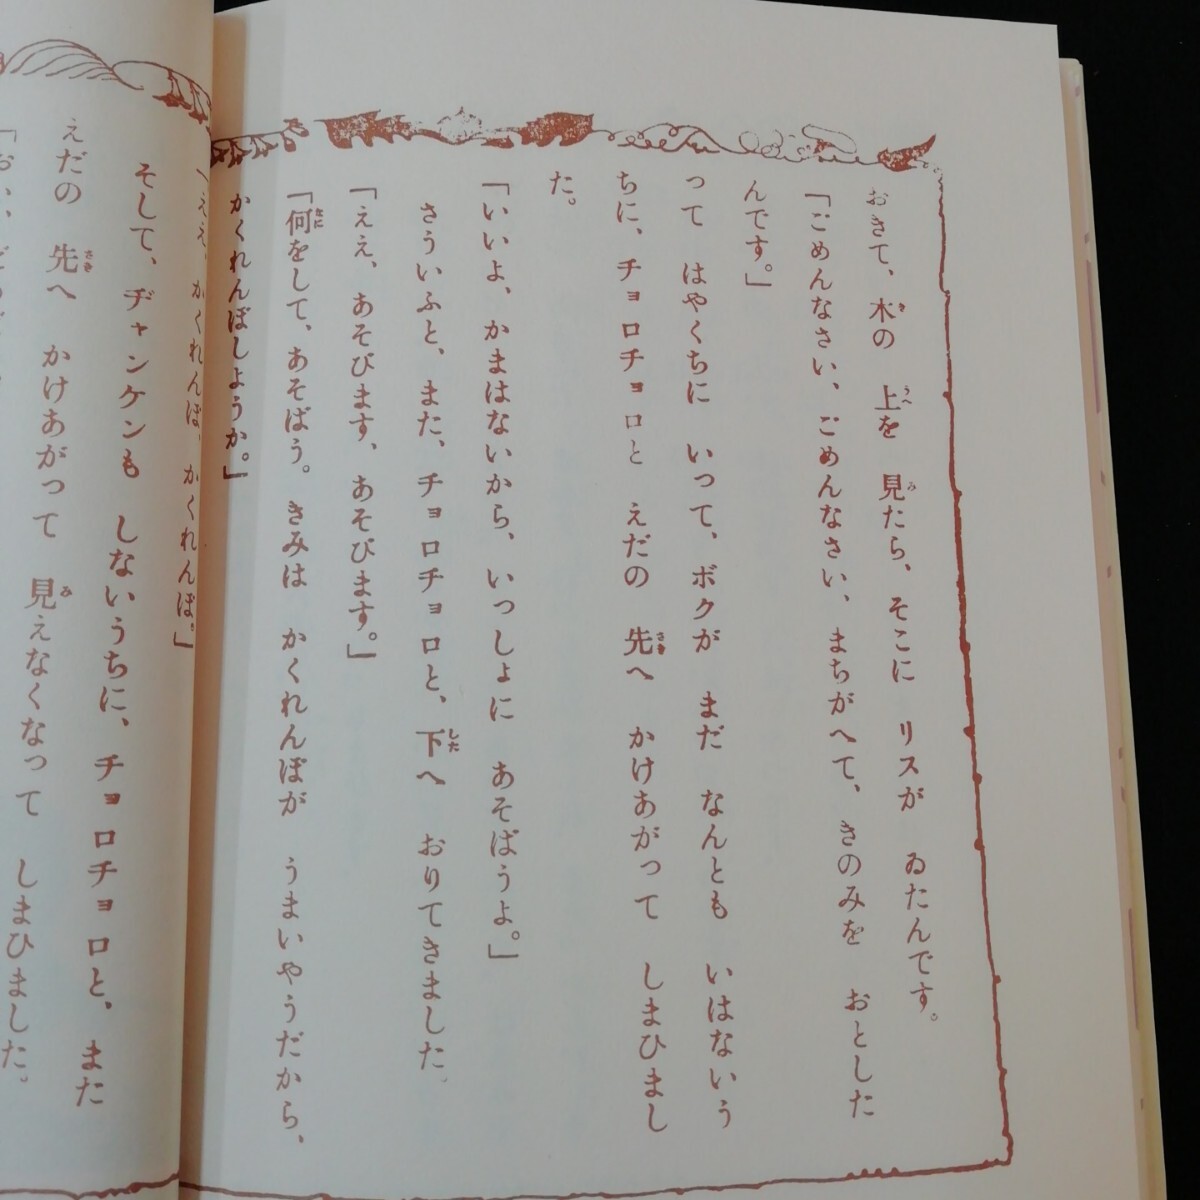 おきて、木の　上を　見たら、そこに　リスが　ゐたんです。
「ごめんなさい、ごめんなさい、まちがへて、きのみを　おとした
んです。」
って　はやくちに　いって、ボクが　まだ　なんとも　いはないう
ちに、チョロチョロと　えだの　先へ　かけあがって　しまひまし
た。
「いいよ、かまはないから、いっしょに　あそばうよ。」
さういふと、また、チョロチョロと、下へ　おりてきました。
「ええ、あそびます、あそびます。」
「何をして、あそばう。きみは　かくれんぼが　うまいやうだから、
かくれんぼしようか。」
「ええ、かくれんぼ、かくれんぼ。」
そして、ヂャンケンも　しないうちに、チョロチョロと、また
えだの　先へ　かけあがって　見えなくなって　しまひました。